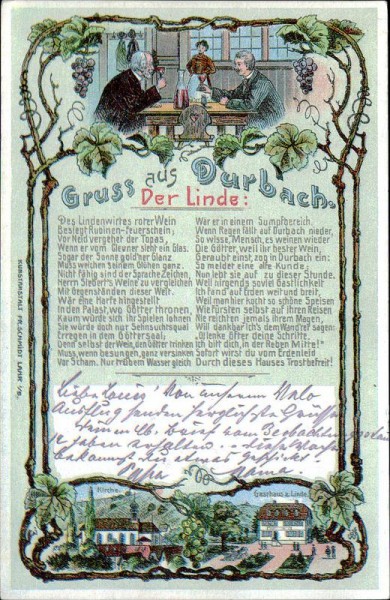 Gruss aus Durbach.
Der Linde:
Des Lindenwirtes roter Wein
Besiegt Rubinen-Feuerschein;
Vor Neid vergehet der Topas,
Wenn er vom Clevner sieht ein Glas.
Sogar der Sonne gold'ner Glanz
Muss weichen seinem Glühen ganz.
Nicht fähig sind der Sprache Zeichen,
Herrn Siefert's Weine zu vergleichen
Mit Gegenständen dieser Welt.
Wär eine Harfe hingestellt
In den Palast, wo Götter thronen,
Kaum würde sich ihr Spielen lohnen
Sie würde doch nur Sehnsuchtsqual
Erregen in dem Göttersaal;
Denn selbst der Wein, den Götter trinken
Muss, wenn besungen, ganz versinken
Vor Scham. Nur trübem Wasser gleich
Wär er in einem Sumpfbereich.
Wenn Regen fällt auf Durbach nieder,
So wisse, Mensch, es weinen wieder
Die Götter, weil ihr bester Wein,
Geraubt einst, zog in Durbach ein;
So meldet eine alte Kunde;
Nun lebt sie auf zu dieser Stunde.
Weil nirgends soviel Gastlichkeit
Ich fand auf Erden weit und breit,
Weil man hier kocht so schöne Speisen
Wie Fürsten selbst auf ihren Reisen
Nie rechten jemals ihrem Magen,
Will dankbar ich's dem Wandrer sagen:
„O lenke öfter deine Schritte,
Ich bitt' dich, in der Reben Mitte!"
Sofort wirst du vom Erdenleid
Durch dieses Haus Trost befreit!
KUNSTANSTALT FR. SCHMIDT LAHR i/B.
Von unserem
Ausflug senden herzlichste Grüsse
Papa Mama
Kirche.
Gasthaus z. Linde